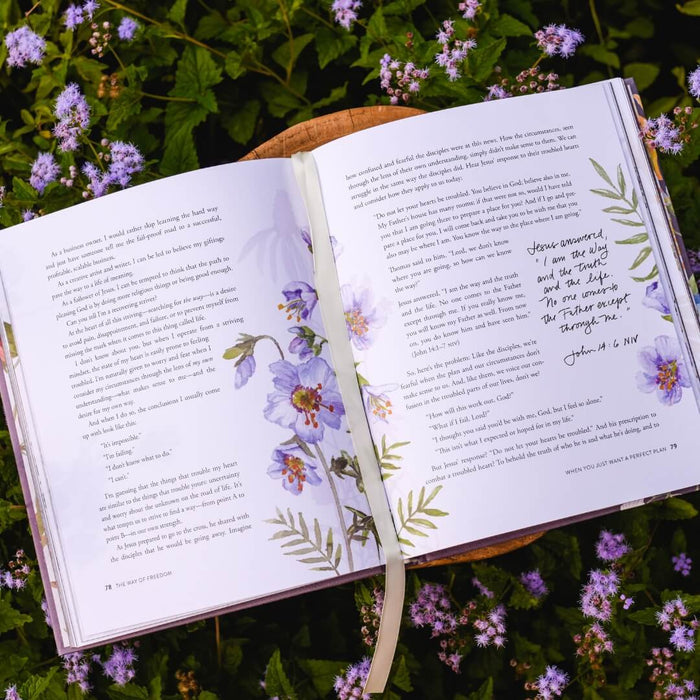 As a business owner, I would rather skip learning the hard way
and just have someone tell me the fail-proof road to a successful,
profitable, scalable business.
As a creative artist and writer, I can be led to believe my giftings
pave the way to a life of meaning.
As a follower of Jesus, I can be tempted to think that the path to
pleasing God is by doing more religious things or being good enough.
Can you tell I'm a recovering striver?
At the heart of all this striving—searching for the way—is a desire
to avoid pain, disappointment, and failure, or to prevent myself from
missing the mark when it comes to this thing called life.
I don't know about you, but when I operate from a striving
mindset, the state of my heart is easily prone to feeling
troubled. I'm naturally given to worry and fear when I
consider my circumstances through the lens of my own
understanding—what makes sense to me—and the
desire for my own way.
And when I do so, the conclusions I usually come
up with look like this:
"It's impossible."
"I'm failing."
"I don't know what to do."
"I can't."
I'm guessing that the things that trouble my heart
are similar to the things that trouble yours: uncertainty
and worry about the unknown on the road of life. It's
what tempts us to strive to find a way—from point A to
point B—in our own strength.
As Jesus prepared to go to the cross, he shared with
the disciples that he would be going away. Imagine
78 THE WAY OF FREEDOM
how confused and fearful the disciples were at this news. How the circumstances, seen
through the lens of their own understanding, simply didn't make sense to them. We can
struggle in the same way the disciples did. Hear Jesus' response to their troubled hearts
and consider how they apply to us today:
"Do not let your hearts be troubled. You believe in God; believe also in me.
My Father's house has many rooms; if that were not so, would I have told
you that I am going there to prepare a place for you? And if I go and pre-
pare a place for you, I will come back and take you to be with me that you
also may be where I am. You know the way to the place where I am going."
Thomas said to him, "Lord, we don't know
where you are going, so how can we know
the way?"
Jesus answered, "I am the way and the truth
and the life. No one comes to the Father
except through me. If you really know me,
you will know my Father as well. From now
on, you do know him and have seen him."
(John 14:1–7 NIV)
So, here's the problem: Like the disciples, we're
fearful when the plan and our circumstances don't
make sense to us. And, like them, we voice our con-
fusion in the troubled parts of our lives, don't we?
"How will this work out, God?"
"What if I fail, Lord?"
"I thought you said you'd be with me, God, but I feel so alone."
"This isn't what I expected or hoped for in my life."
But Jesus' response? "Do not let your hearts be troubled." And his prescription to
combat a troubled heart? To behold the truth of who he is and what he's doing, and to
WHEN YOU JUST WANT A PERFECT PLAN 79
Jesus answered,
"I am the Way
and the truth
and the life.
No one comes to
the Father except
through me."
John 14:6 NIV